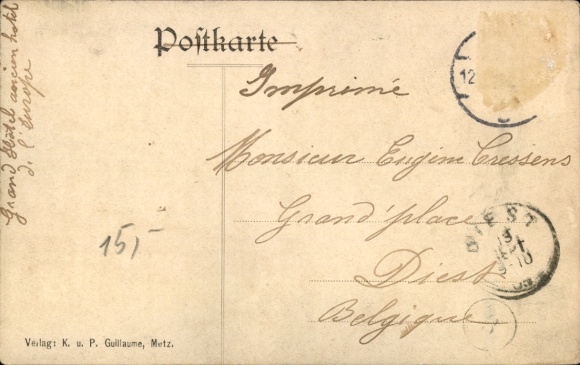 Grand Hôtel ancien hotel
d. l'Europe
Postkarte
Imprimé
12
Monsieur Eugène Cressens
Grand'place
Diest
Belgique
DIEST
15,-
Verlag: K. u. P. Guillaume, Metz.